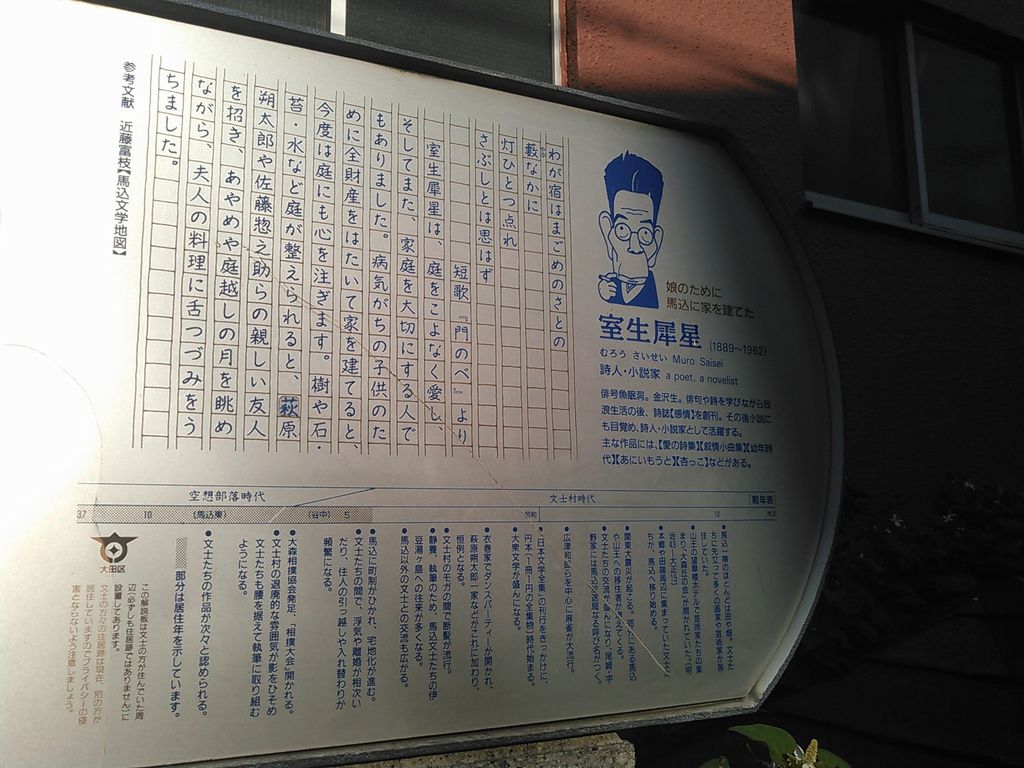 娘のために
馬込に家を建てた
室生犀星 (1889〜1962)
むろう さいせい Muro Saisei
詩人・小説家 a poet, a novelist
俳号魚眠洞。金沢生。俳句や詩を学びながら放
浪生活の後、詩誌【感情】を創刊。その後小説に
も目覚め、詩人・小説家として活躍する。
主な作品には、【愛の詩集】【叙情小曲集】【幼年時
代】【あにいもうと】【杏っこ】などがある。
わが宿はまごめのさとの
藪なかに
灯ひとつ点れ
さぶしとは思はず
短歌『門のべ』より
室生犀星は、庭をこよなく愛し、
そしてまた、家庭を大切にする人で
もありました。病気がちの子供のた
めに全財産をはたいて家を建てると、
今度は庭にも心を注ぎます。樹や石・
苔・水など庭が整えられると、萩原
朔太郎や佐藤惣之助らの親しい友人
を招き、あやめや庭越しの月を眺め
ながら、夫人の料理に舌つづみをう
ちました。
参考文献 近藤富枝【馬込文学地図】
略年表
文士村時代
空想部落時代
大正
10
昭和
5
(谷中)
(馬込東)
10
37
●馬込一帯のほとんどは田や畑。文士た
ちに先立って多くの画家や芸術家が居
住していた。
●山王の望翠楼ホテルで芸術家たちの集
まり、「大森丘の会」が開かれていた。(明
治43〜大正15)
●本郷や田端周辺に集まっていた文士た
ちが、馬込へ移り始める。
●関東大震災が起る。等、都心である馬込
や山王への移住者がふえてくる。
●文士たちの交流が盛んになり、尾崎・宇
野家には馬込放送局なる呼び名がつく。
●広津和郎らを中心に麻雀が大流行。
●「日本文学全集」の刊行をきっかけに、
円本(1冊1円の全集物)時代始まる。
●大衆文学が盛んになる。
●衣巻家でダンスパーティーが開かれ、
萩原朔太郎一家などがこれに加わり、
恒例となる。
●文士村のモガの間で断髪が流行。
●静養、執筆のため、馬込文士たちの伊
豆湯ヶ島への往来が多くなる。
●馬込以外の文士との交流も広がる。
●馬込に町制がひかれ、宅地化が進む。
●文士たちの間で、浮気や離婚が相次い
だり、住人の引っ越しや入れ替わりが
頻繁になる。
●大森相撲協会発足、「相撲大会」開かれる。
●文士村の退廃的な雰囲気が影をひそめ
文士たちも腰を据えて執筆に取り組む
ようになる。
●文士たちの作品が次々と認められる。
部分は居住年を示しています。
大田区
この解説板は文士の方が住んでいた周
辺(必ずしも住居跡ではありません)に
設置してあります。
文士の方々の住居跡は現在、別の方が
居住していますのでプライバシーの侵
害とならないよう注意しましょう。